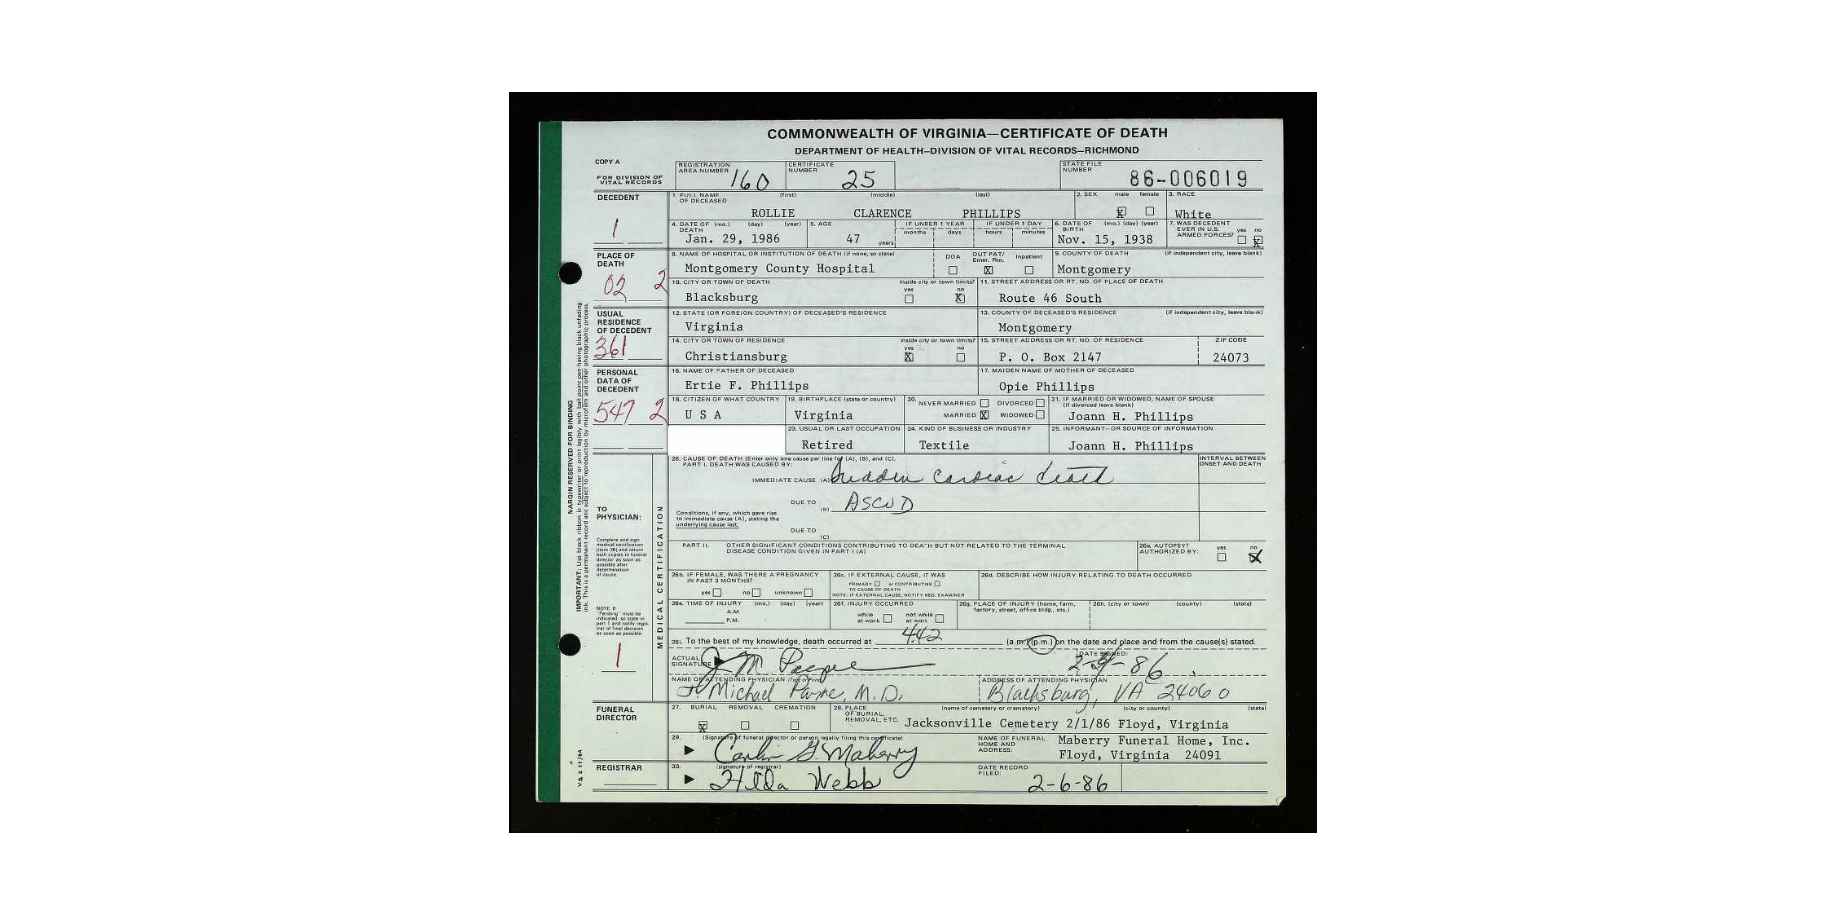 COMMONWEALTH OF VIRGINIA—CERTIFICATE OF DEATH
DEPARTMENT OF HEALTH—DIVISION OF VITAL RECORDS—RICHMOND
COPY A
FOR DIVISION OF VITAL RECORDS
REGISTRATION AREA NUMBER 160
CERTIFICATE NUMBER 25
STATE FILE NUMBER 86-006019
DECEDENT
1
1. FULL NAME OF DECEASED (first) (middle) (last)
ROLLIE CLARENCE PHILLIPS
2. SEX male female
X
3. RACE
White
4. DATE OF DEATH (mo.) (day) (year)
Jan. 29, 1986
5. AGE
47 years
IF UNDER 1 YEAR months days
IF UNDER 1 DAY hours minutes
6. DATE OF BIRTH (mo.) (day) (year)
Nov. 15, 1938
7. WAS DECEDENT EVER IN U.S. ARMED FORCES? yes no
X
PLACE OF DEATH
02 2
8. NAME OF HOSPITAL OR INSTITUTION OF DEATH (if none, so state)
Montgomery County Hospital
DOA OUT PAT/ Emer. Rm. Inpatient
X
9. COUNTY OF DEATH (if independent city, leave blank)
Montgomery
10. CITY OR TOWN OF DEATH
Blacksburg
inside city or town limits? yes no
X
11. STREET ADDRESS OR RT. NO. OF PLACE OF DEATH
Route 46 South
USUAL RESIDENCE OF DECEDENT
361
12. STATE (OR FOREIGN COUNTRY) OF DECEASED'S RESIDENCE
Virginia
13. COUNTY OF DECEASED'S RESIDENCE (if independent city, leave blank)
Montgomery
14. CITY OR TOWN OF RESIDENCE
Christiansburg
inside city or town limits? yes no
X
15. STREET ADDRESS OR RT. NO. OF RESIDENCE
P. O. Box 2147
ZIP CODE
24073
PERSONAL DATA OF DECEDENT
547 2
16. NAME OF FATHER OF DECEASED
Ertie F. Phillips
17. MAIDEN NAME OF MOTHER OF DECEASED
Opie Phillips
18. CITIZEN OF WHAT COUNTRY
U S A
19. BIRTHPLACE (state or country)
Virginia
20. NEVER MARRIED DIVORCED
MARRIED X WIDOWED
21. IF MARRIED OR WIDOWED, NAME OF SPOUSE (if divorced leave blank)
Joann H. Phillips
23. USUAL OR LAST OCCUPATION
Retired
24. KIND OF BUSINESS OR INDUSTRY
Textile
25. INFORMANT—OR SOURCE OF INFORMATION
Joann H. Phillips
MARGIN RESERVED FOR BINDING
MEDICAL CERTIFICATION
TO PHYSICIAN:
Complete and sign medical certification (item 26) and return both copies to funeral director as soon as possible after determination of cause.
NOTE: If "Pending" must be indicated, so state in part I and notify registrar of final decision as soon as possible.
1
26. CAUSE OF DEATH (Enter only one cause per line for (A), (B), and (C).
PART I. DEATH WAS CAUSED BY:
IMMEDIATE CAUSE (A) Sudden cardiac death
INTERVAL BETWEEN ONSET AND DEATH
DUE TO (B) ASCVD
Conditions, if any, which gave rise to immediate cause (A), stating the underlying cause last.
DUE TO (C)
PART II. OTHER SIGNIFICANT CONDITIONS CONTRIBUTING TO DEATH BUT NOT RELATED TO THE TERMINAL DISEASE CONDITION GIVEN IN PART I (A)
26a. AUTOPSY AUTHORIZED BY: yes no
X
26b. IF FEMALE, WAS THERE A PREGNANCY IN PAST 3 MONTHS?
yes no unknown
26c. IF EXTERNAL CAUSE, IT WAS
PRIMARY or CONTRIBUTING
TO CAUSE OF DEATH
NOTE: IF EXTERNAL CAUSE, NOTIFY MED. EXAMINER
26d. DESCRIBE HOW INJURY RELATING TO DEATH OCCURRED
26e. TIME OF INJURY (mo.) (day) (year)
A.M.
P.M.
26f. INJURY OCCURRED
while at work not while at work
26g. PLACE OF INJURY (home, farm, factory, street, office bldg., etc.)
26h. (city or town) (county) (state)
26i. To the best of my knowledge, death occurred at 442 (a.m.) (p.m.) on the date and place and from the cause(s) stated.
ACTUAL SIGNATURE J M Payne
DATE SIGNED:
NAME OF ATTENDING PHYSICIAN
J. Michael Payne, M.D.
ADDRESS OF ATTENDING PHYSICIAN
Blacksburg, VA 24060
FUNERAL DIRECTOR
27. BURIAL REMOVAL CREMATION
X
28. PLACE OF BURIAL, REMOVAL, ETC. (name of cemetery or crematory) (city or county) (state)
Jacksonville Cemetery 2/1/86 Floyd, Virginia
29. (Signature of funeral director or person legally filing this certificate)
G. Maberry
NAME OF FUNERAL HOME AND ADDRESS:
Maberry Funeral Home, Inc.
Floyd, Virginia 24091
REGISTRAR
30. (signature of registrar)
Hilda Webb
DATE RECORD FILED:
2-6-86